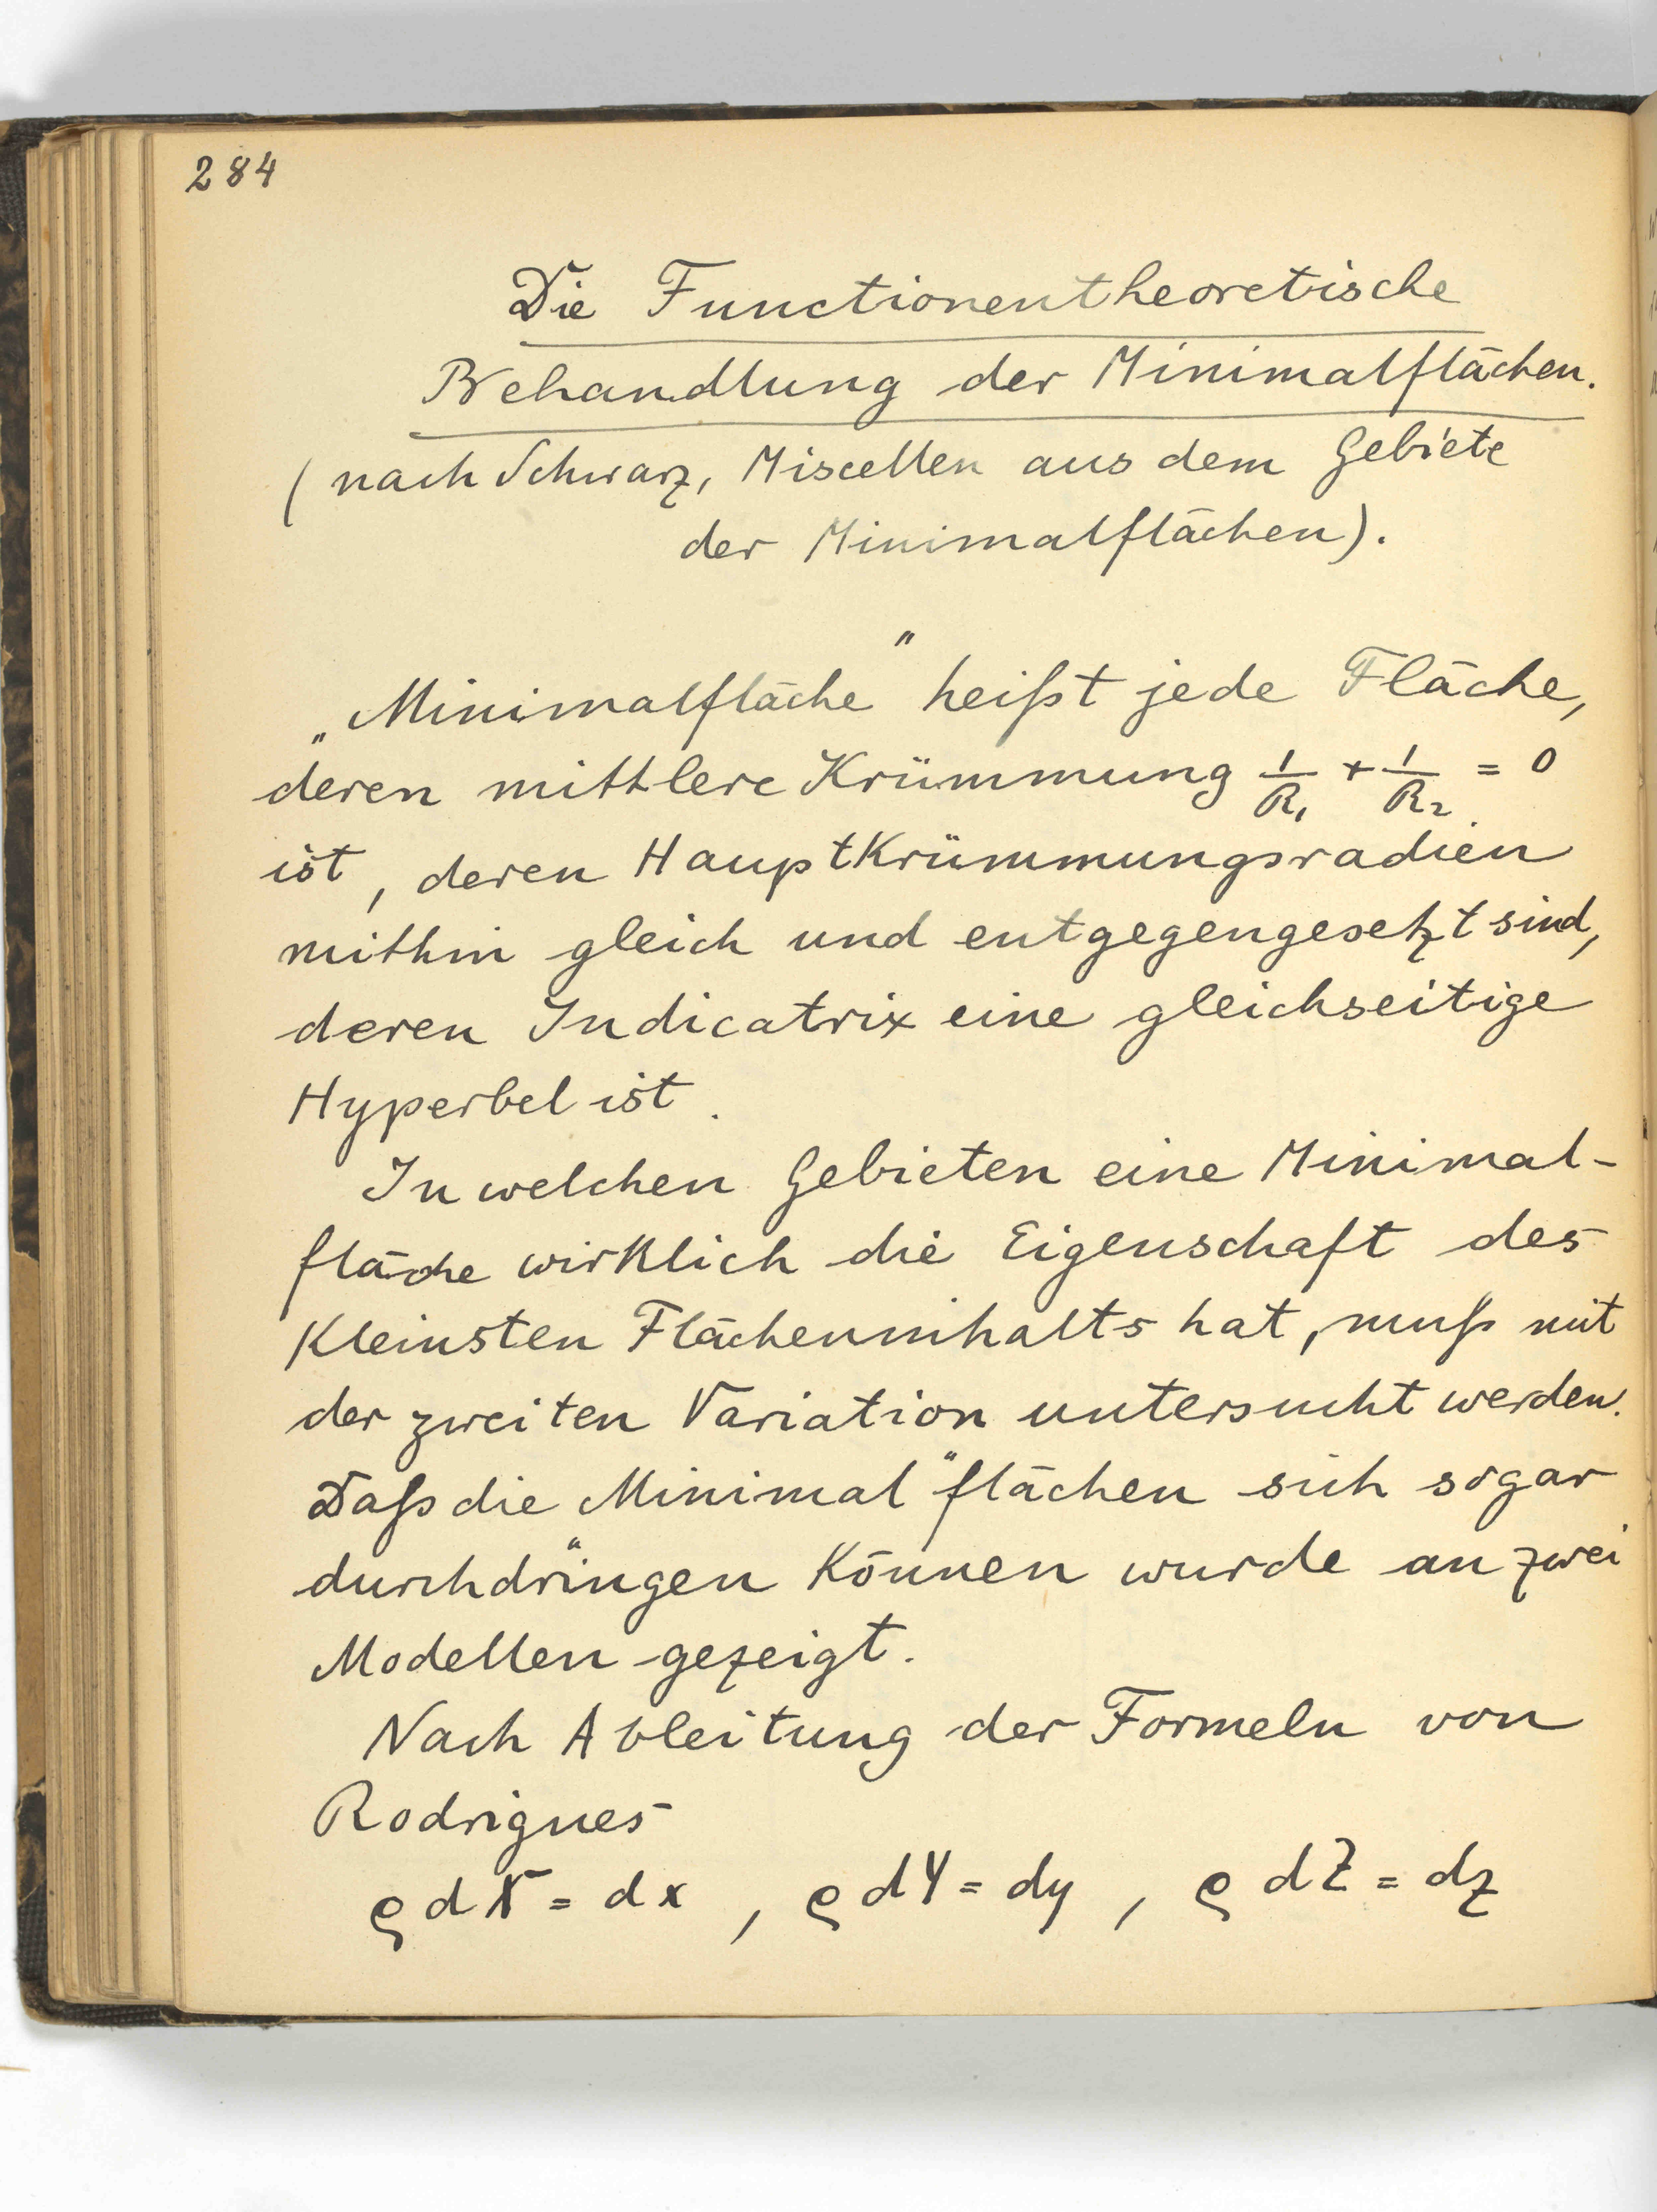 284
Die Functionentheoretische
Behandlung der Minimalflächen.
(nach Schwarz, Miscellen aus dem Gebiete
der Minimalflächen).
„Minimalfläche" heißt jede Fläche,
deren mittlere Krümmung 1/R₁ + 1/R₂ = 0
ist, deren Hauptkrümmungsradien
mithin gleich und entgegengesetzt sind,
deren Indicatrix eine gleichseitige
Hyperbel ist.
In welchen Gebieten eine Minimal-
fläche wirklich die Eigenschaft des
kleinsten Flächeninhalts hat, muß mit
der zweiten Variation untersucht werden.
Daß die Minimal"flächen sich sogar
durchdringen können wurde an zwei
Modellen gezeigt.
Nach Ableitung der Formeln von
Rodrigues
ρ dX = dx , ρ dY = dy , ρ dZ = dz